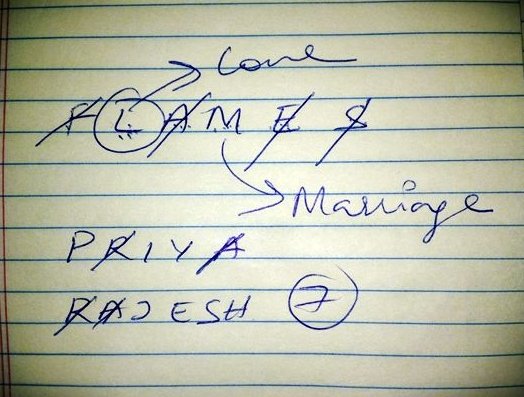 Love
FLAMES
Marriage
PRIYA
RAJESH 7